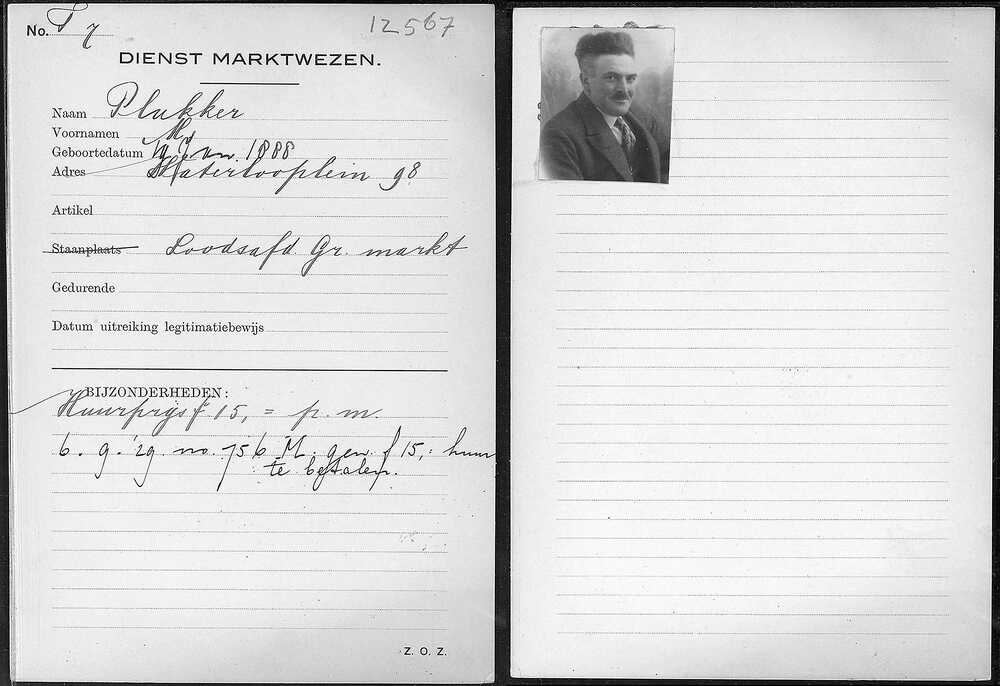 No. T 7
12567
DIENST MARKTWEZEN.
Naam Plukker
Voornamen M.
Geboortedatum 19 Jan. 1888
Adres Waterlooplein 98
Artikel
Staanplaats Loodsafd. Gr. markt
Gedurende
Datum uitreiking legitimatiebewijs
BIJZONDERHEDEN:
Huurprijs f 15,= p. m.
6. 9. '29 no. 756 M. gen. f 15,= huur
te betalen.
Z. O. Z.